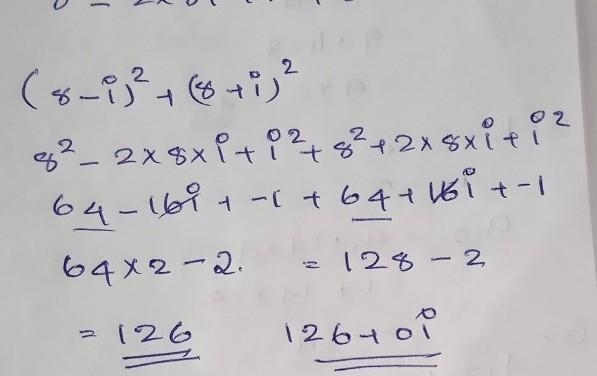 (8-i)² + (8+i)²
8² - 2×8×i + i² + 8² + 2×8×i + i²
64 - 16i + -1 + 64 + 16i + -1
64×2 - 2. = 128 - 2
= 126 126+0i